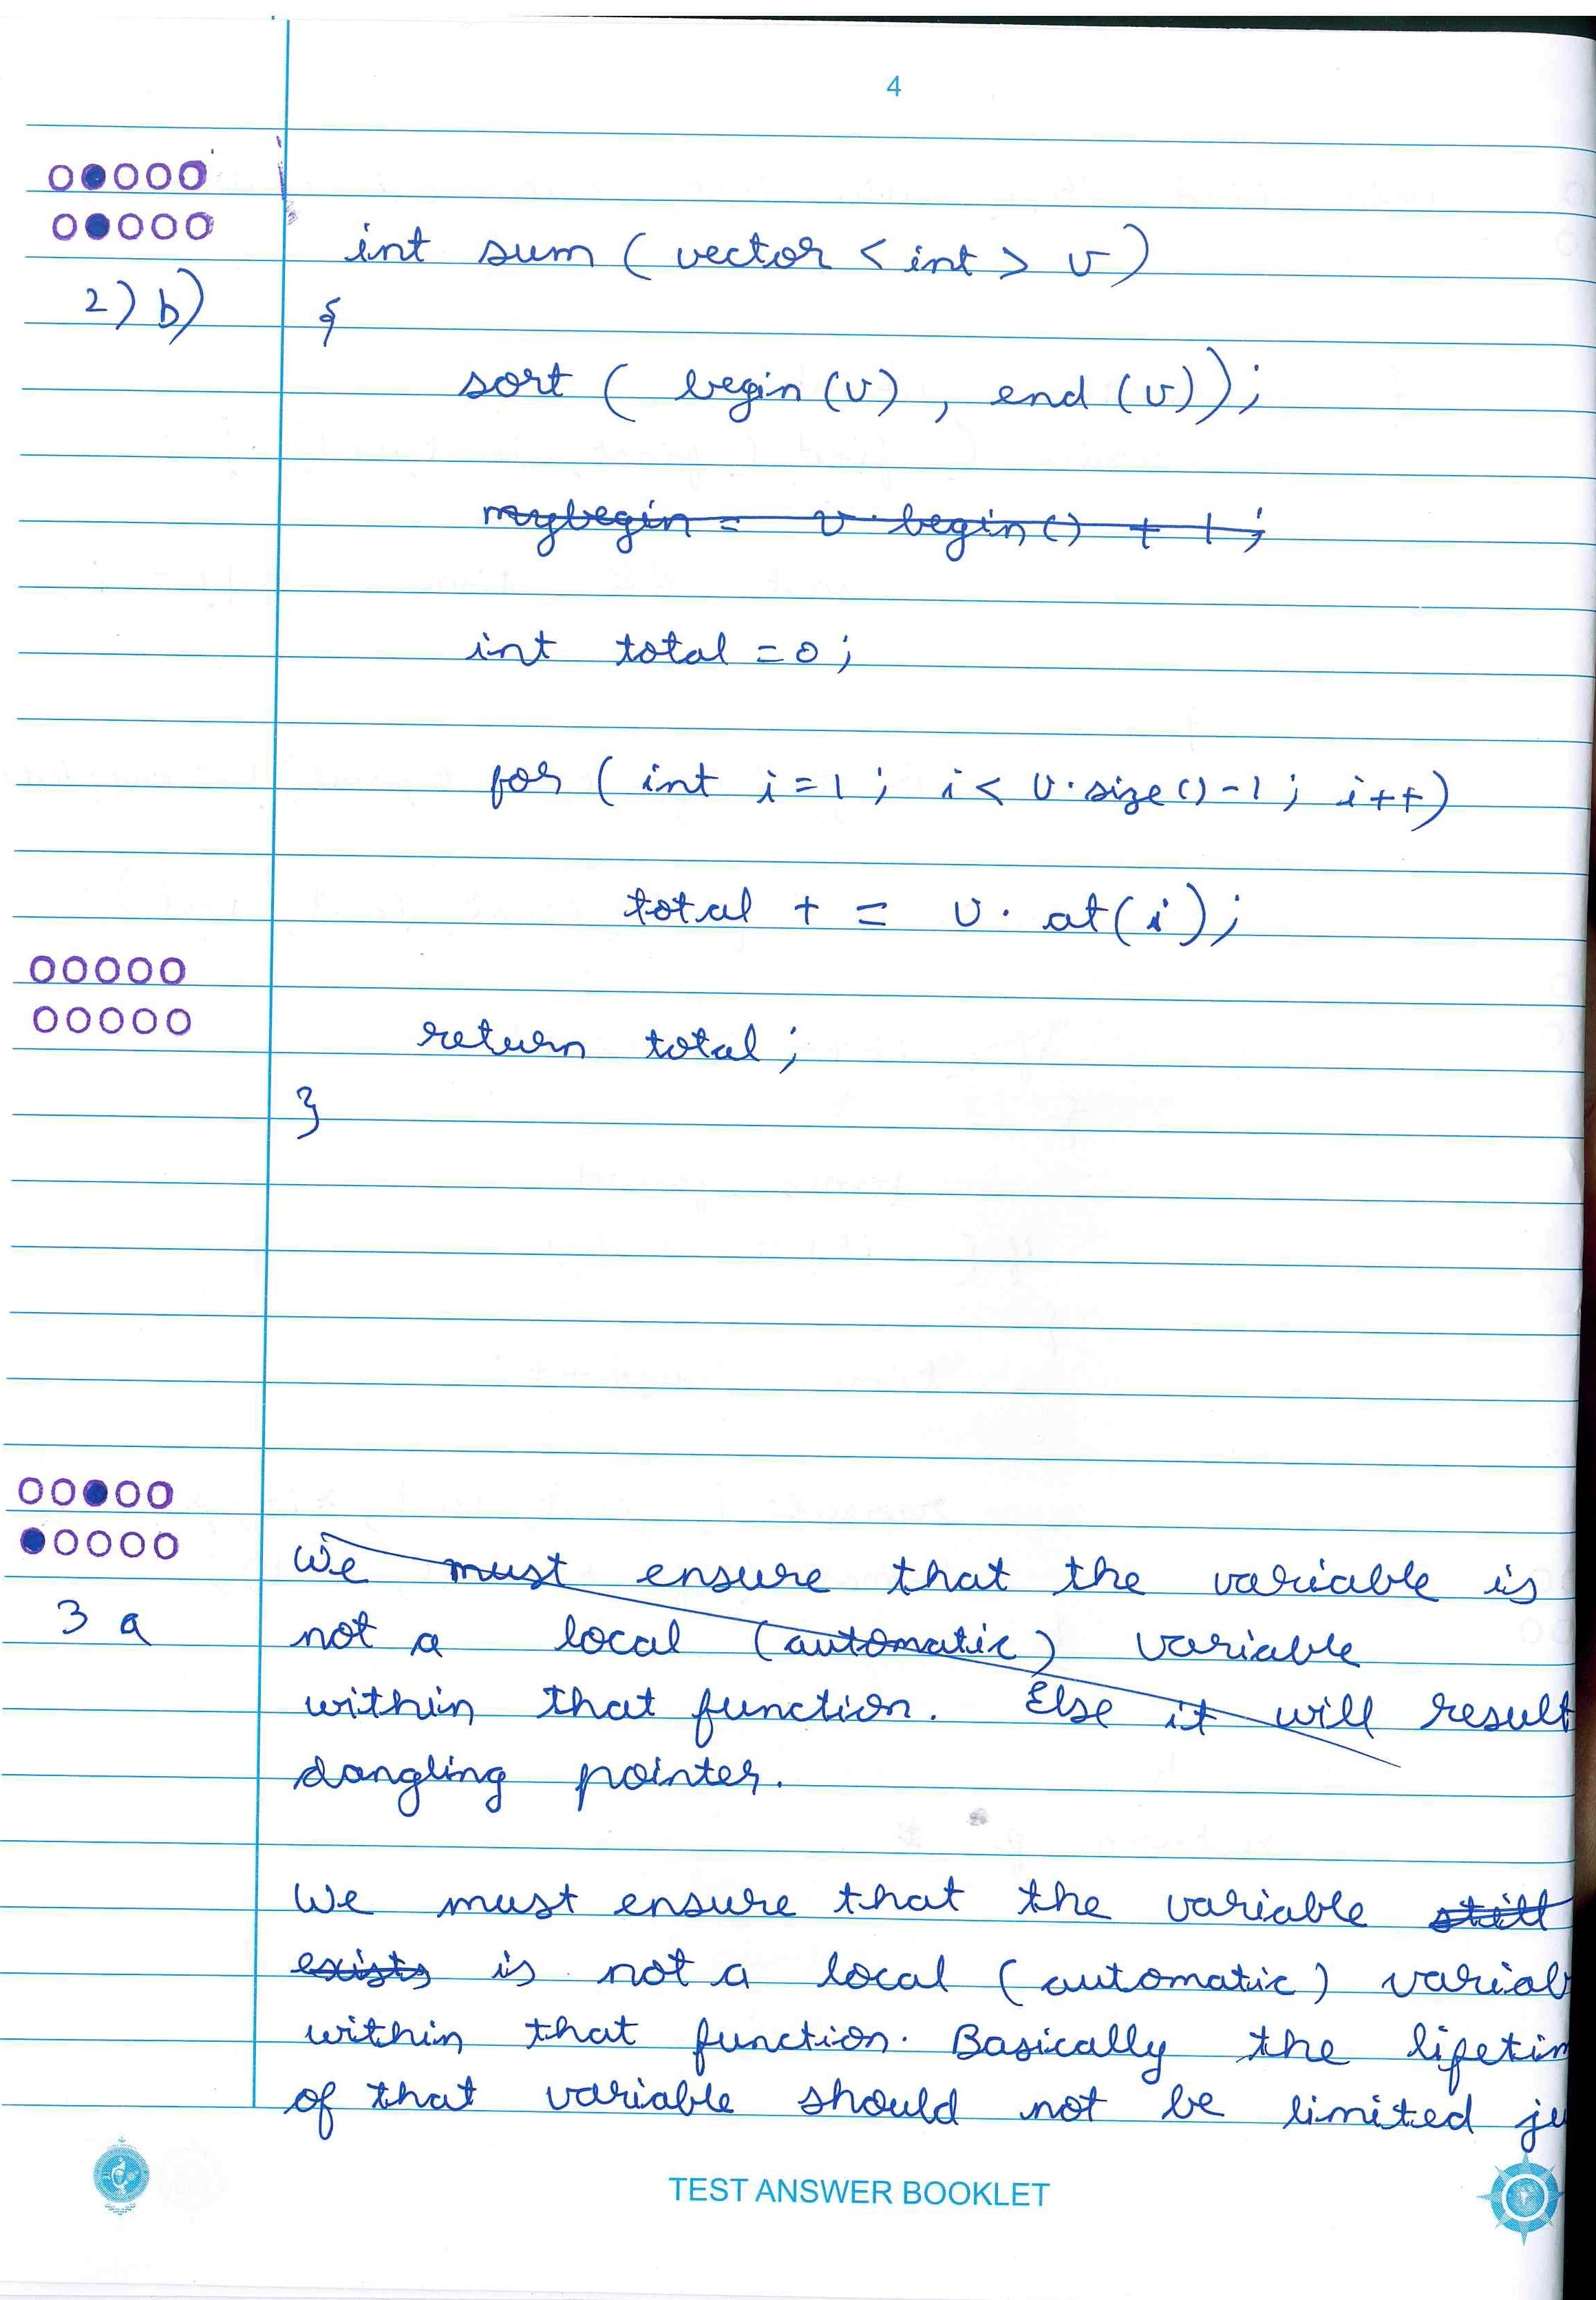 4
2) b)
int sum ( vector < int > v )
{
sort ( begin (v) , end (v));
mybegin = v. begin () + 1 ;
int total = 0 ;
for ( int i = 1 ; i < v. size () - 1 ; i ++ )
total + = v. at (i) ;
return total ;
}
3 a
We must ensure that the variable is
not a local (automatic) variable
within that function. Else it will result
dangling pointer.
We must ensure that the variable still
exists is not a local (automatic) variab
within that function. Basically the lifetim
of that variable should not be limited ju
TEST ANSWER BOOKLET